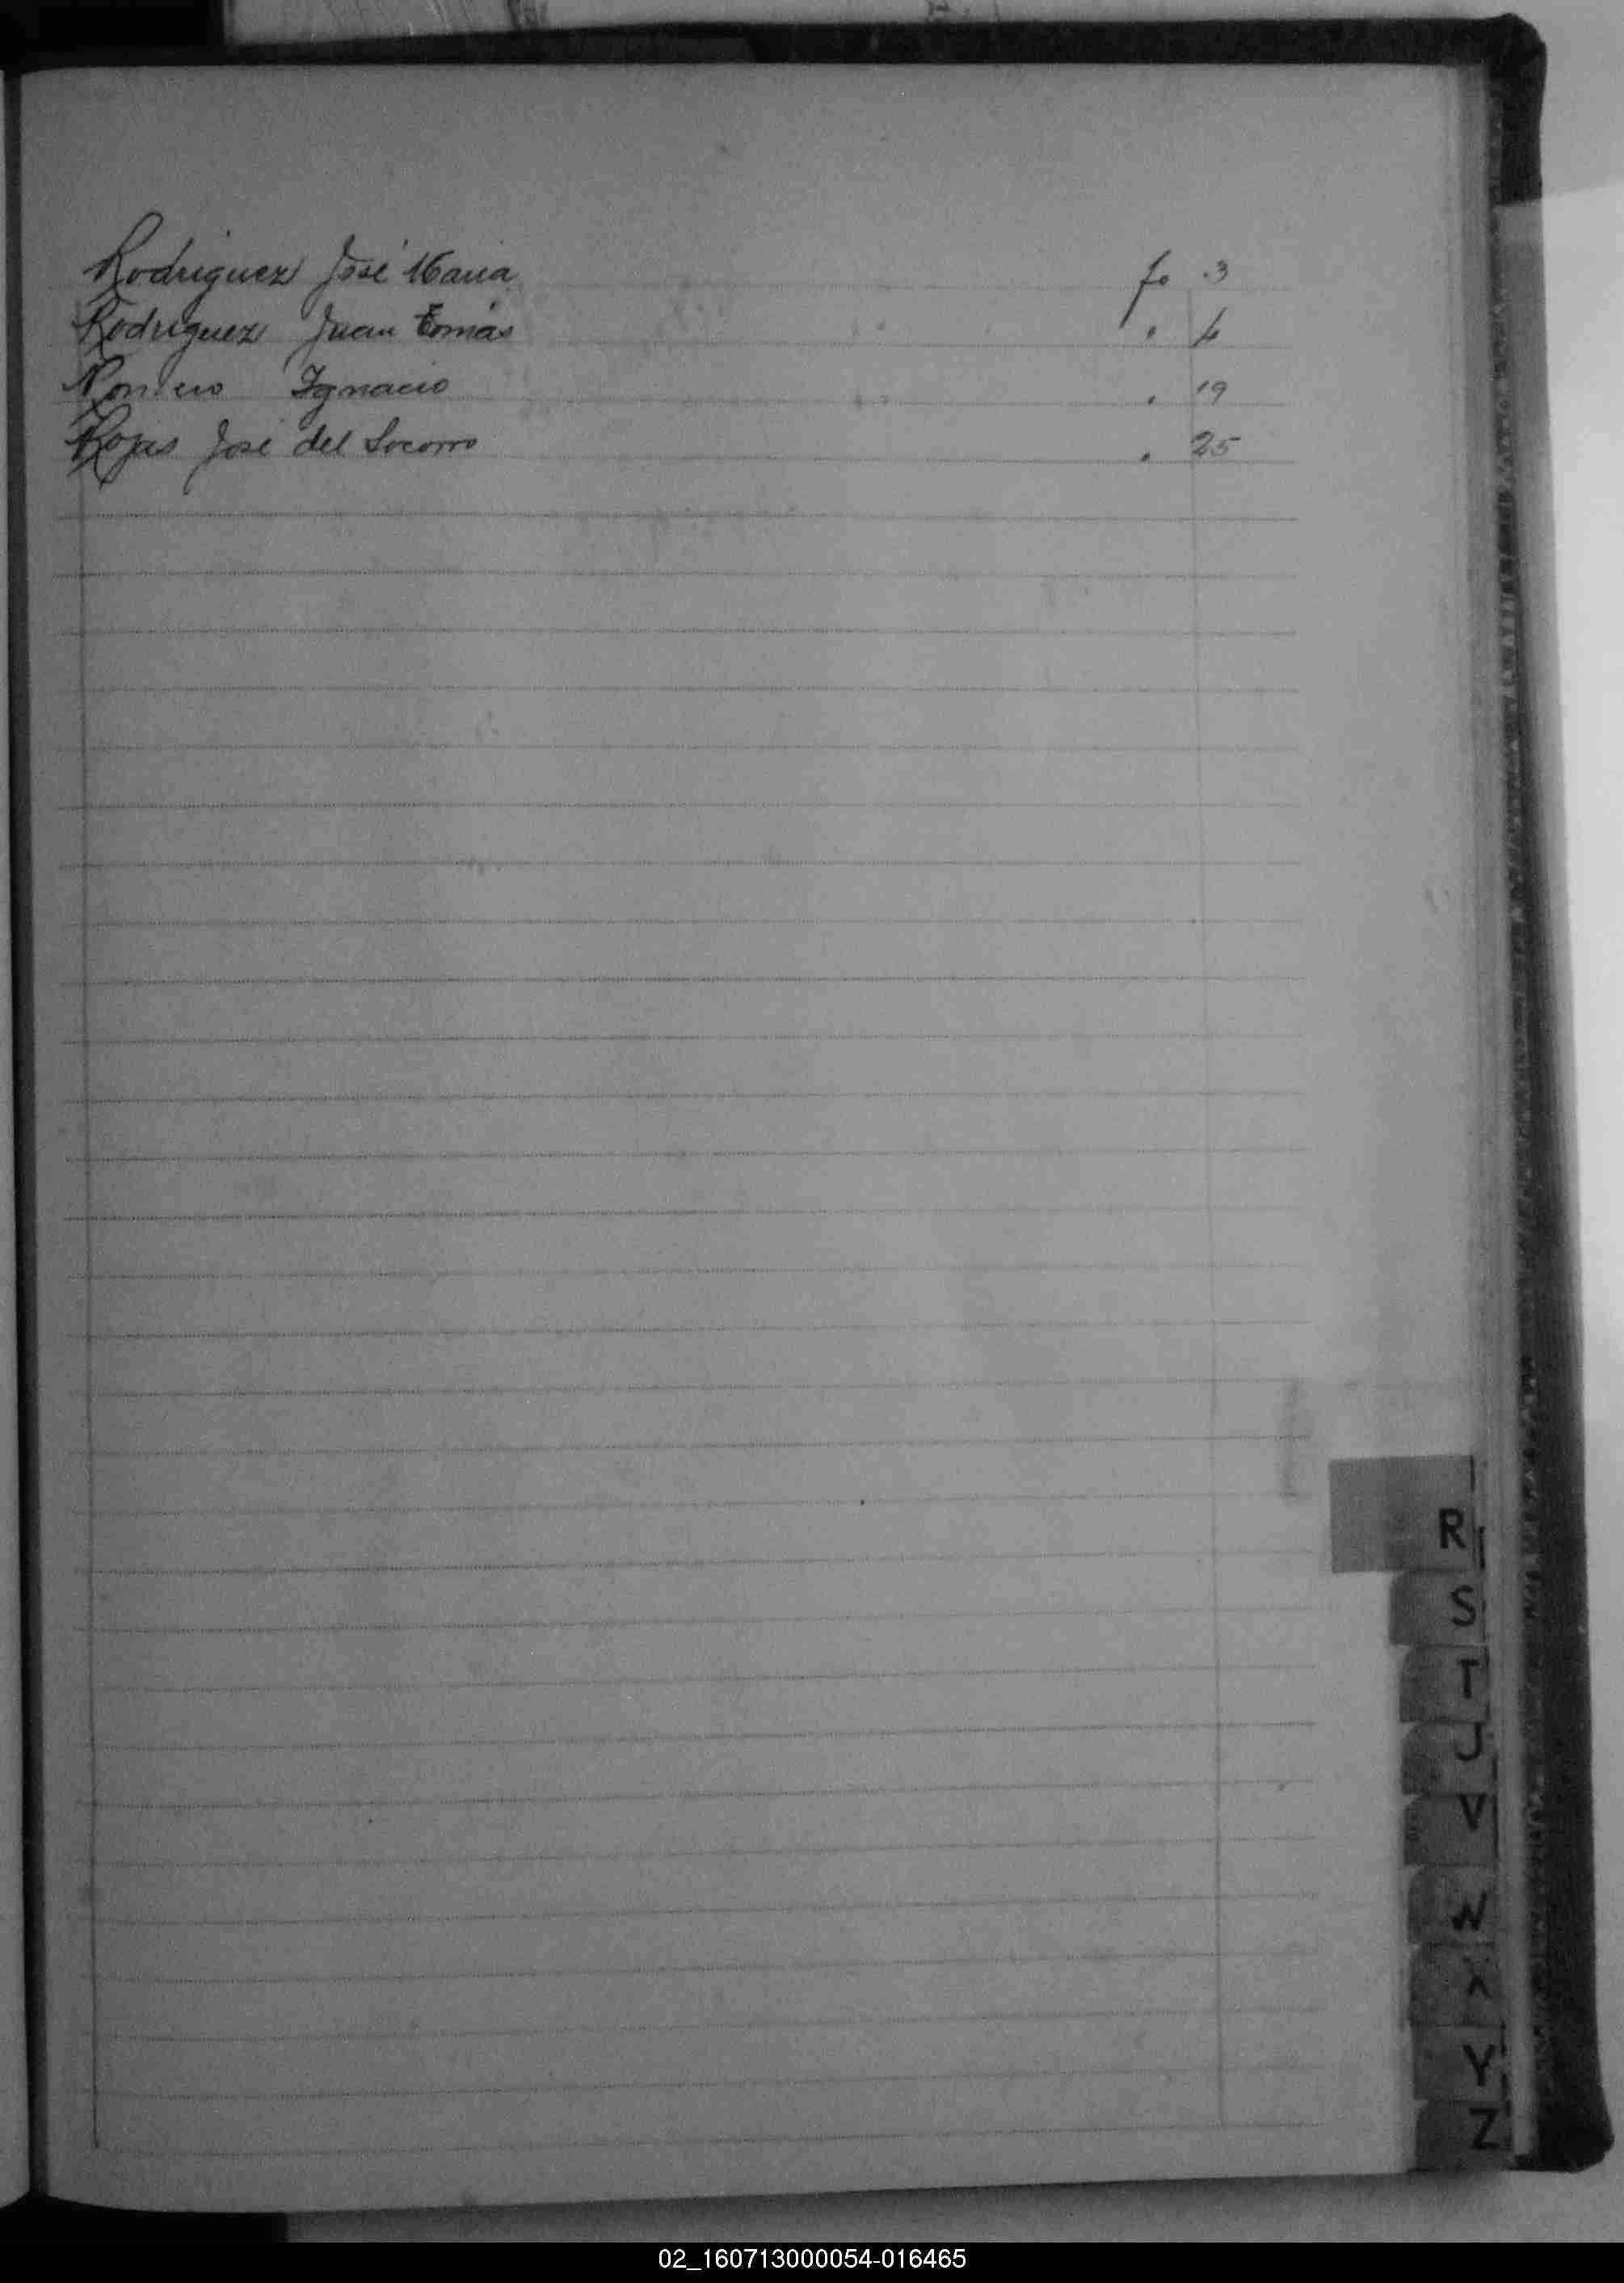 Rodriguez José Maria fo 3
Rodriguez Juan Tomás " 4
Romero Ignacio " 19
Rojas José del Socorro " 25
R
S
T
U
V
W
X
Y
Z
02_160713000054-016465